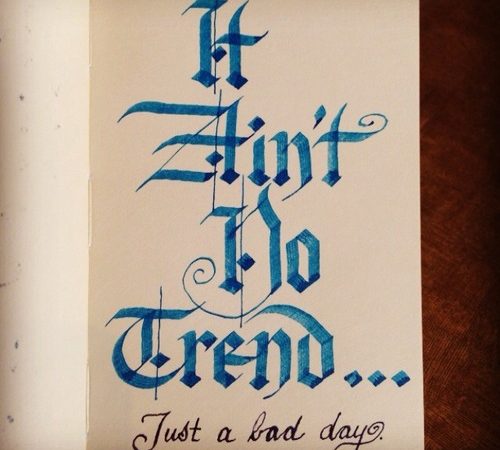 It
Ain't
No
Trend...
Just a bad day.